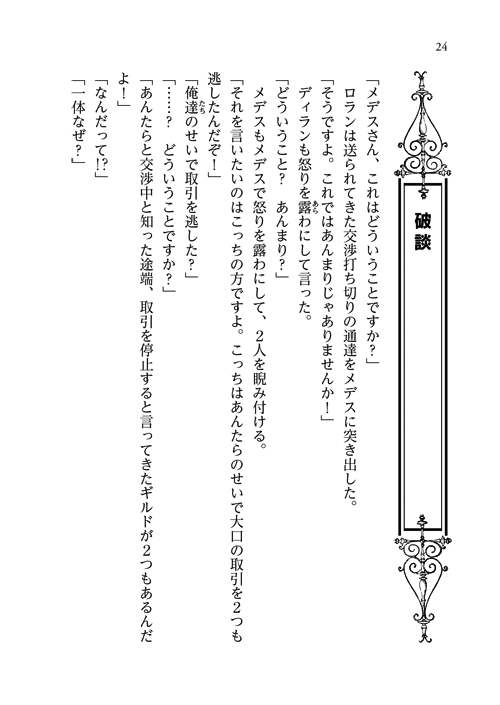 24
破談
「メデスさん、これはどういうことですか？」
ロランは送られてきた交渉打ち切りの通達をメデスに突き出した。
「そうですよ。これではあんまりじゃありませんか！」
ディランも怒りを露あらわにして言った。
「どういうこと？　あんまり？」
メデスもメデスで怒りを露わにして、２人を睨み付ける。
「それを言いたいのはこっちの方ですよ。こっちはあんたらのせいで大口の取引を２つも
逃したんだぞ！」
「俺達たちのせいで取引を逃した？」
「……？　どういうことですか？」
「あんたらと交渉中と知った途端、取引を停止すると言ってきたギルドが２つもあるんだ
よ！」
「なんだって!?」
「一体なぜ？」